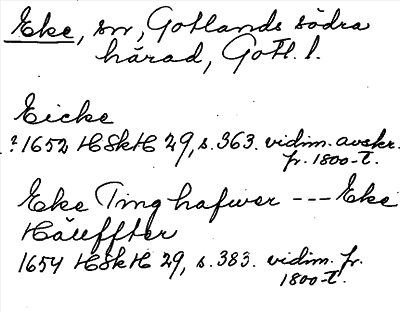 Eke, sn, Gotlands södra
härad, Gotl. l.
Eicke
? 1652 HSkH 29, s. 363. vidim. avskr.
fr. 1800-t.
Eke Ting hafwer --- Eke
Häuffter
1654 HSkH 29, s. 383. vidim. fr.
1800-t.